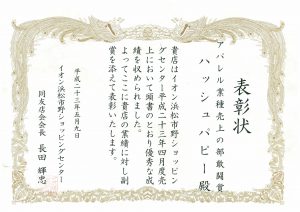 表彰状
アパレル業種売上の部敢闘賞
ハッシュパピー殿
貴店はイオン浜松市野ショッピン
グセンター平成二十三年四月度売
上において頭書のとおり優秀な成
績を収められました。
よってここに貴店の業績に対し副
賞を添えて表彰いたします。
平成二十三年五月九日
イオン浜松市野ショッピングセンター
同友店会会長 長田 輝忠